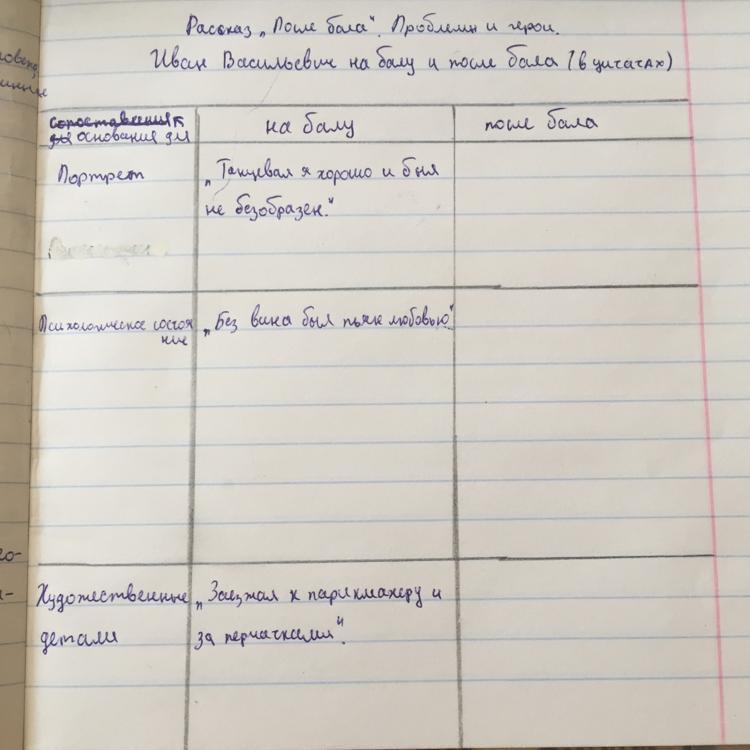 Рассказ „После бала". Проблемы и герои.
Иван Васильевич на балу и после бала (в цитатах)
основания для
на балу
после бала
Портрет
„Танцевал я хорошо и был
не безобразен."
Психологическое состоя
ние
„Без вина был пьян любовью"
Художественные
детали
„Заезжал к парикмахеру и
за перчатками".